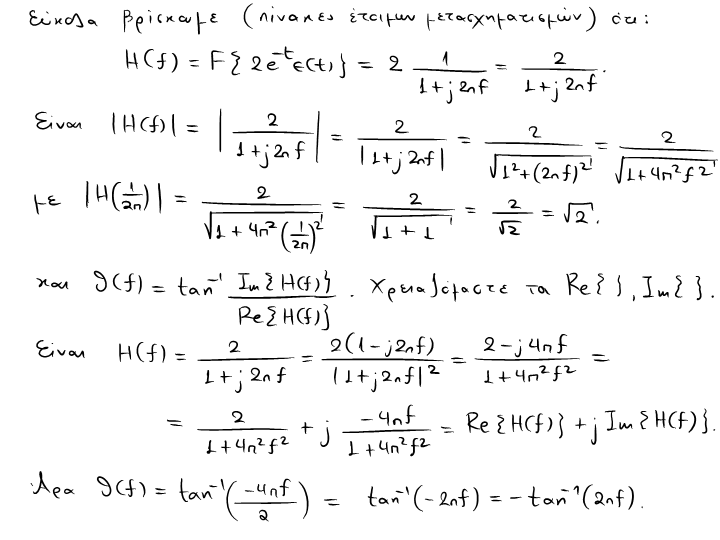 Εύκολα βρίσκουμε (πίνακες έτοιμων μετασχηματισμών) ότι:
H(f) = F{2e^{-t}ε(t)} = 2 \frac{1}{1+j2πf} = \frac{2}{1+j2πf}.
Είναι |H(f)| = |\frac{2}{1+j2πf}| = \frac{2}{|1+j2πf|} = \frac{2}{\sqrt{1^2+(2πf)^2}} = \frac{2}{\sqrt{1+4π^2f^2}}
με |H(\frac{1}{2π})| = \frac{2}{\sqrt{1+4π^2(\frac{1}{2π})^2}} = \frac{2}{\sqrt{1+1}} = \frac{2}{\sqrt{2}} = \sqrt{2}.
και θ(f) = tan^{-1} \frac{Im{H(f)}}{Re{H(f)}}. Χρειαζόμαστε τα Re{ }, Im{ }.
Είναι H(f) = \frac{2}{1+j2πf} = \frac{2(1-j2πf)}{|1+j2πf|^2} = \frac{2-j4πf}{1+4π^2f^2} =
= \frac{2}{1+4π^2f^2} + j \frac{-4πf}{1+4π^2f^2} = Re{H(f)} + j Im{H(f)}.
Άρα θ(f) = tan^{-1}(\frac{-4πf}{2}) = tan^{-1}(-2πf) = -tan^{-1}(2πf).